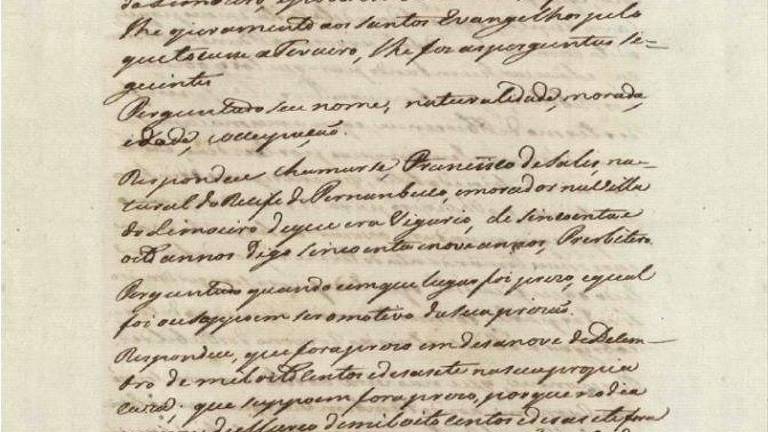 do Limoeiro,
lhe juramento aos santos Evangelhos pelo
que tocasse a Terceiro, lhe fez as perguntas se=
guintes
Perguntado seu nome, naturalidade, morada,
idade, occupação.
Respondeu chamarse Francisco de Sales, na=
tural do Recife de Pernambuco, e morador na Villa
do Limoeiro de que era Vigario, de sincoenta e
oito annos digo sincoenta e nove annos, Presbitero
Perguntado quando e em que lugar foi prezo, e qual
foi ou suppoem ser o motivo da sua prizão.
Respondeu, que fora prezo em desanove de Dezem=
bro de mil oito centos e desasete na sua propria
caza, que suppoem fora prezo, porque no dia
de Março de mil oito centos e desasete fora